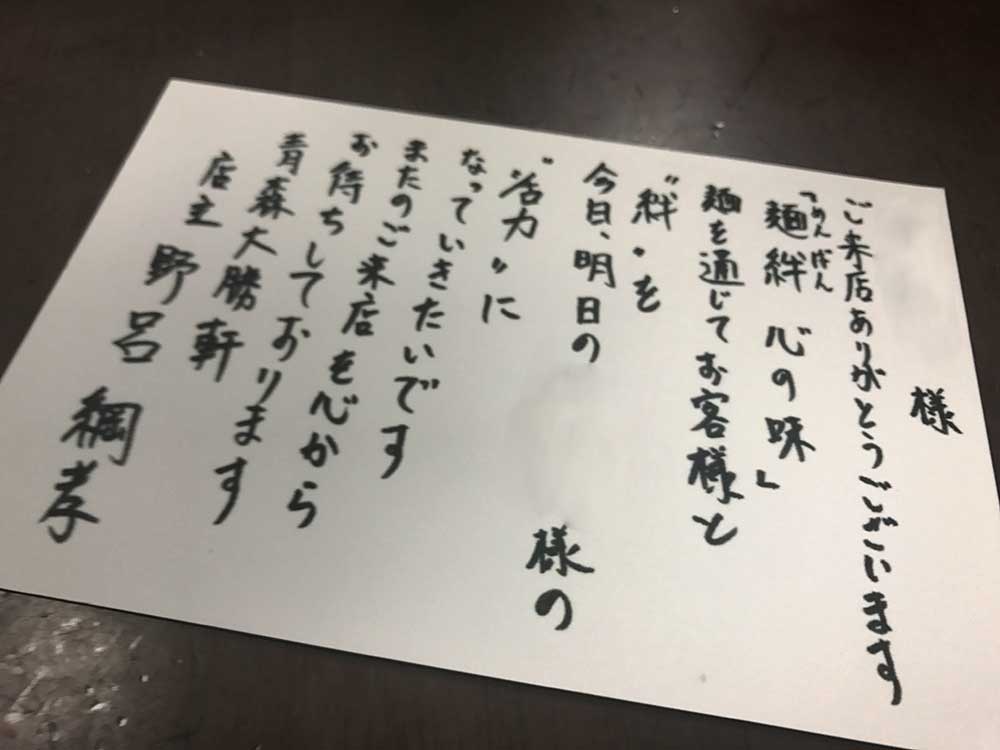 様
ご来店ありがとうございます
「麺絆 心の味」
めんばん
麺を通じてお客様と
“絆”を
今日、明日の
様の
“活力”に
なっていきたいです
またのご来店を心から
お待ちしております
青森大勝軒
店主 野呂 綱孝